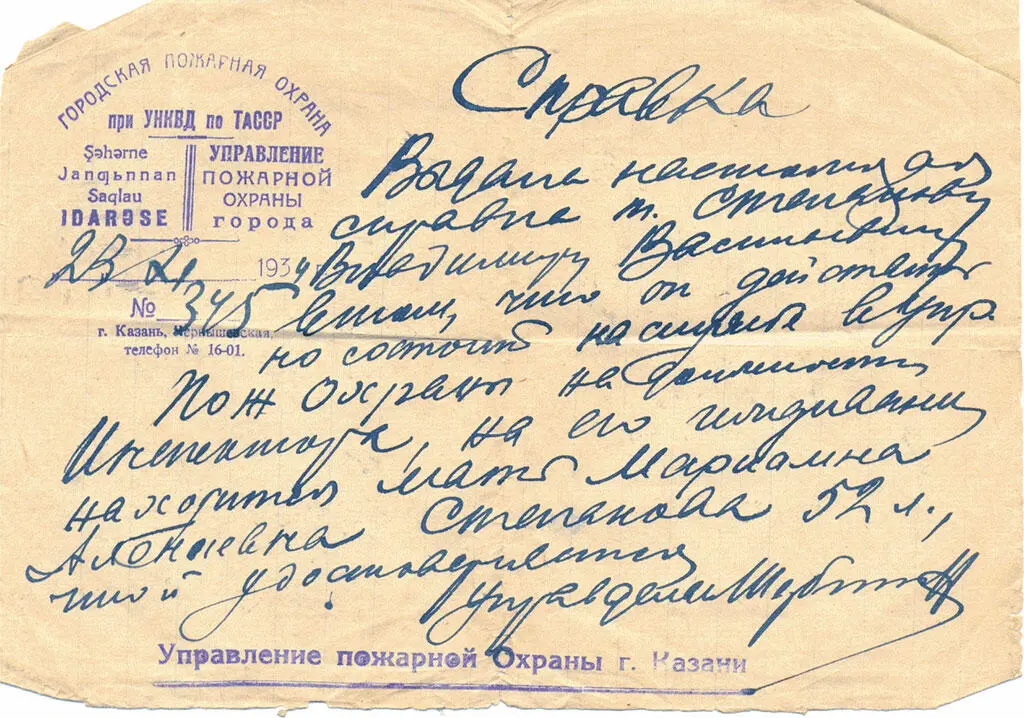 ГОРОДСКАЯ ПОЖАРНАЯ ОХРАНА
при УНКВД по ТАССР
Şəhərne
Janƣьnnan
Saqlau
IDARƏSE
УПРАВЛЕНИЕ
ПОЖАРНОЙ
ОХРАНЫ
города
1934
№ 345
г. Казань, Чернышевская,
телефон № 16-01.
Справка
Выдана настоящая
справка т. Степанову
Владимиру Васильевичу
в том, что он действитель
но состоит на службе в Упр.
Пож Охраны на должности
Инспектора, на его иждивении
находится мать Марианна
Алексеевна Степанова 52 л.,
что и удостоверяется
Управделами
Управление пожарной Охраны г. Казани